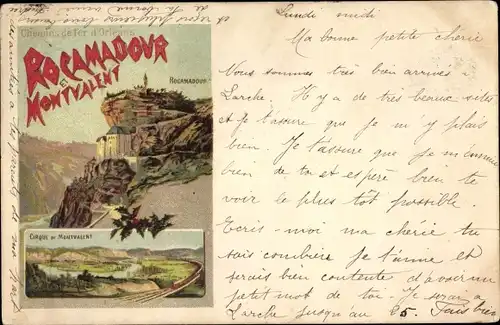 Chemins de fer d'Orléans
ROCAMADOUR
ET
MONTVALENT
ROCAMADOUR
CIRQUE DE MONTVALENT
Lundi midi
Ma bonne petite chérie
Nous sommes très bien arrivés
Larche. Il y a de très beaux sites
et je t'assure que je m'y plais
bien. Je t'assure que je m'ennuie
bien de toi et espère bien te
voir le plus tôt possible.
Ecris-moi ma chérie tu
sais combien je t'aime et
serais bien contente d'avoir un
petit mot de toi. Je serai à
Larche jusqu'au 25. Fais bien